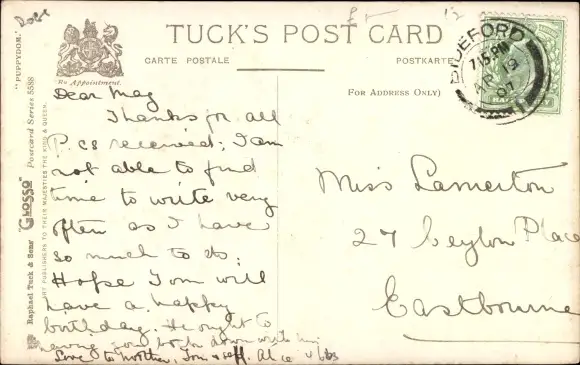 Dobt
"PUPPYDOM."
TUCK'S POST CARD
CARTE POSTALE
POSTKARTE
By Appointment.
(FOR ADDRESS ONLY)
BIDEFORD
7.15 PM
AP 19
07
Raphael Tuck & Sons' "GLOSSO" Postcard Series 5588
ART PUBLISHERS TO THEIR MAJESTIES THE KING & QUEEN.
Dear May
Thanks for all
P.cs received; I am
not able to find
time to write very
often as I have
so much to do;
Hope Tom will
have a happy
birthday. He ought to
having down write him
Love to mother, Tom & self. Alice
Miss Lamerton
27 Ceylon Place
Eastbourne